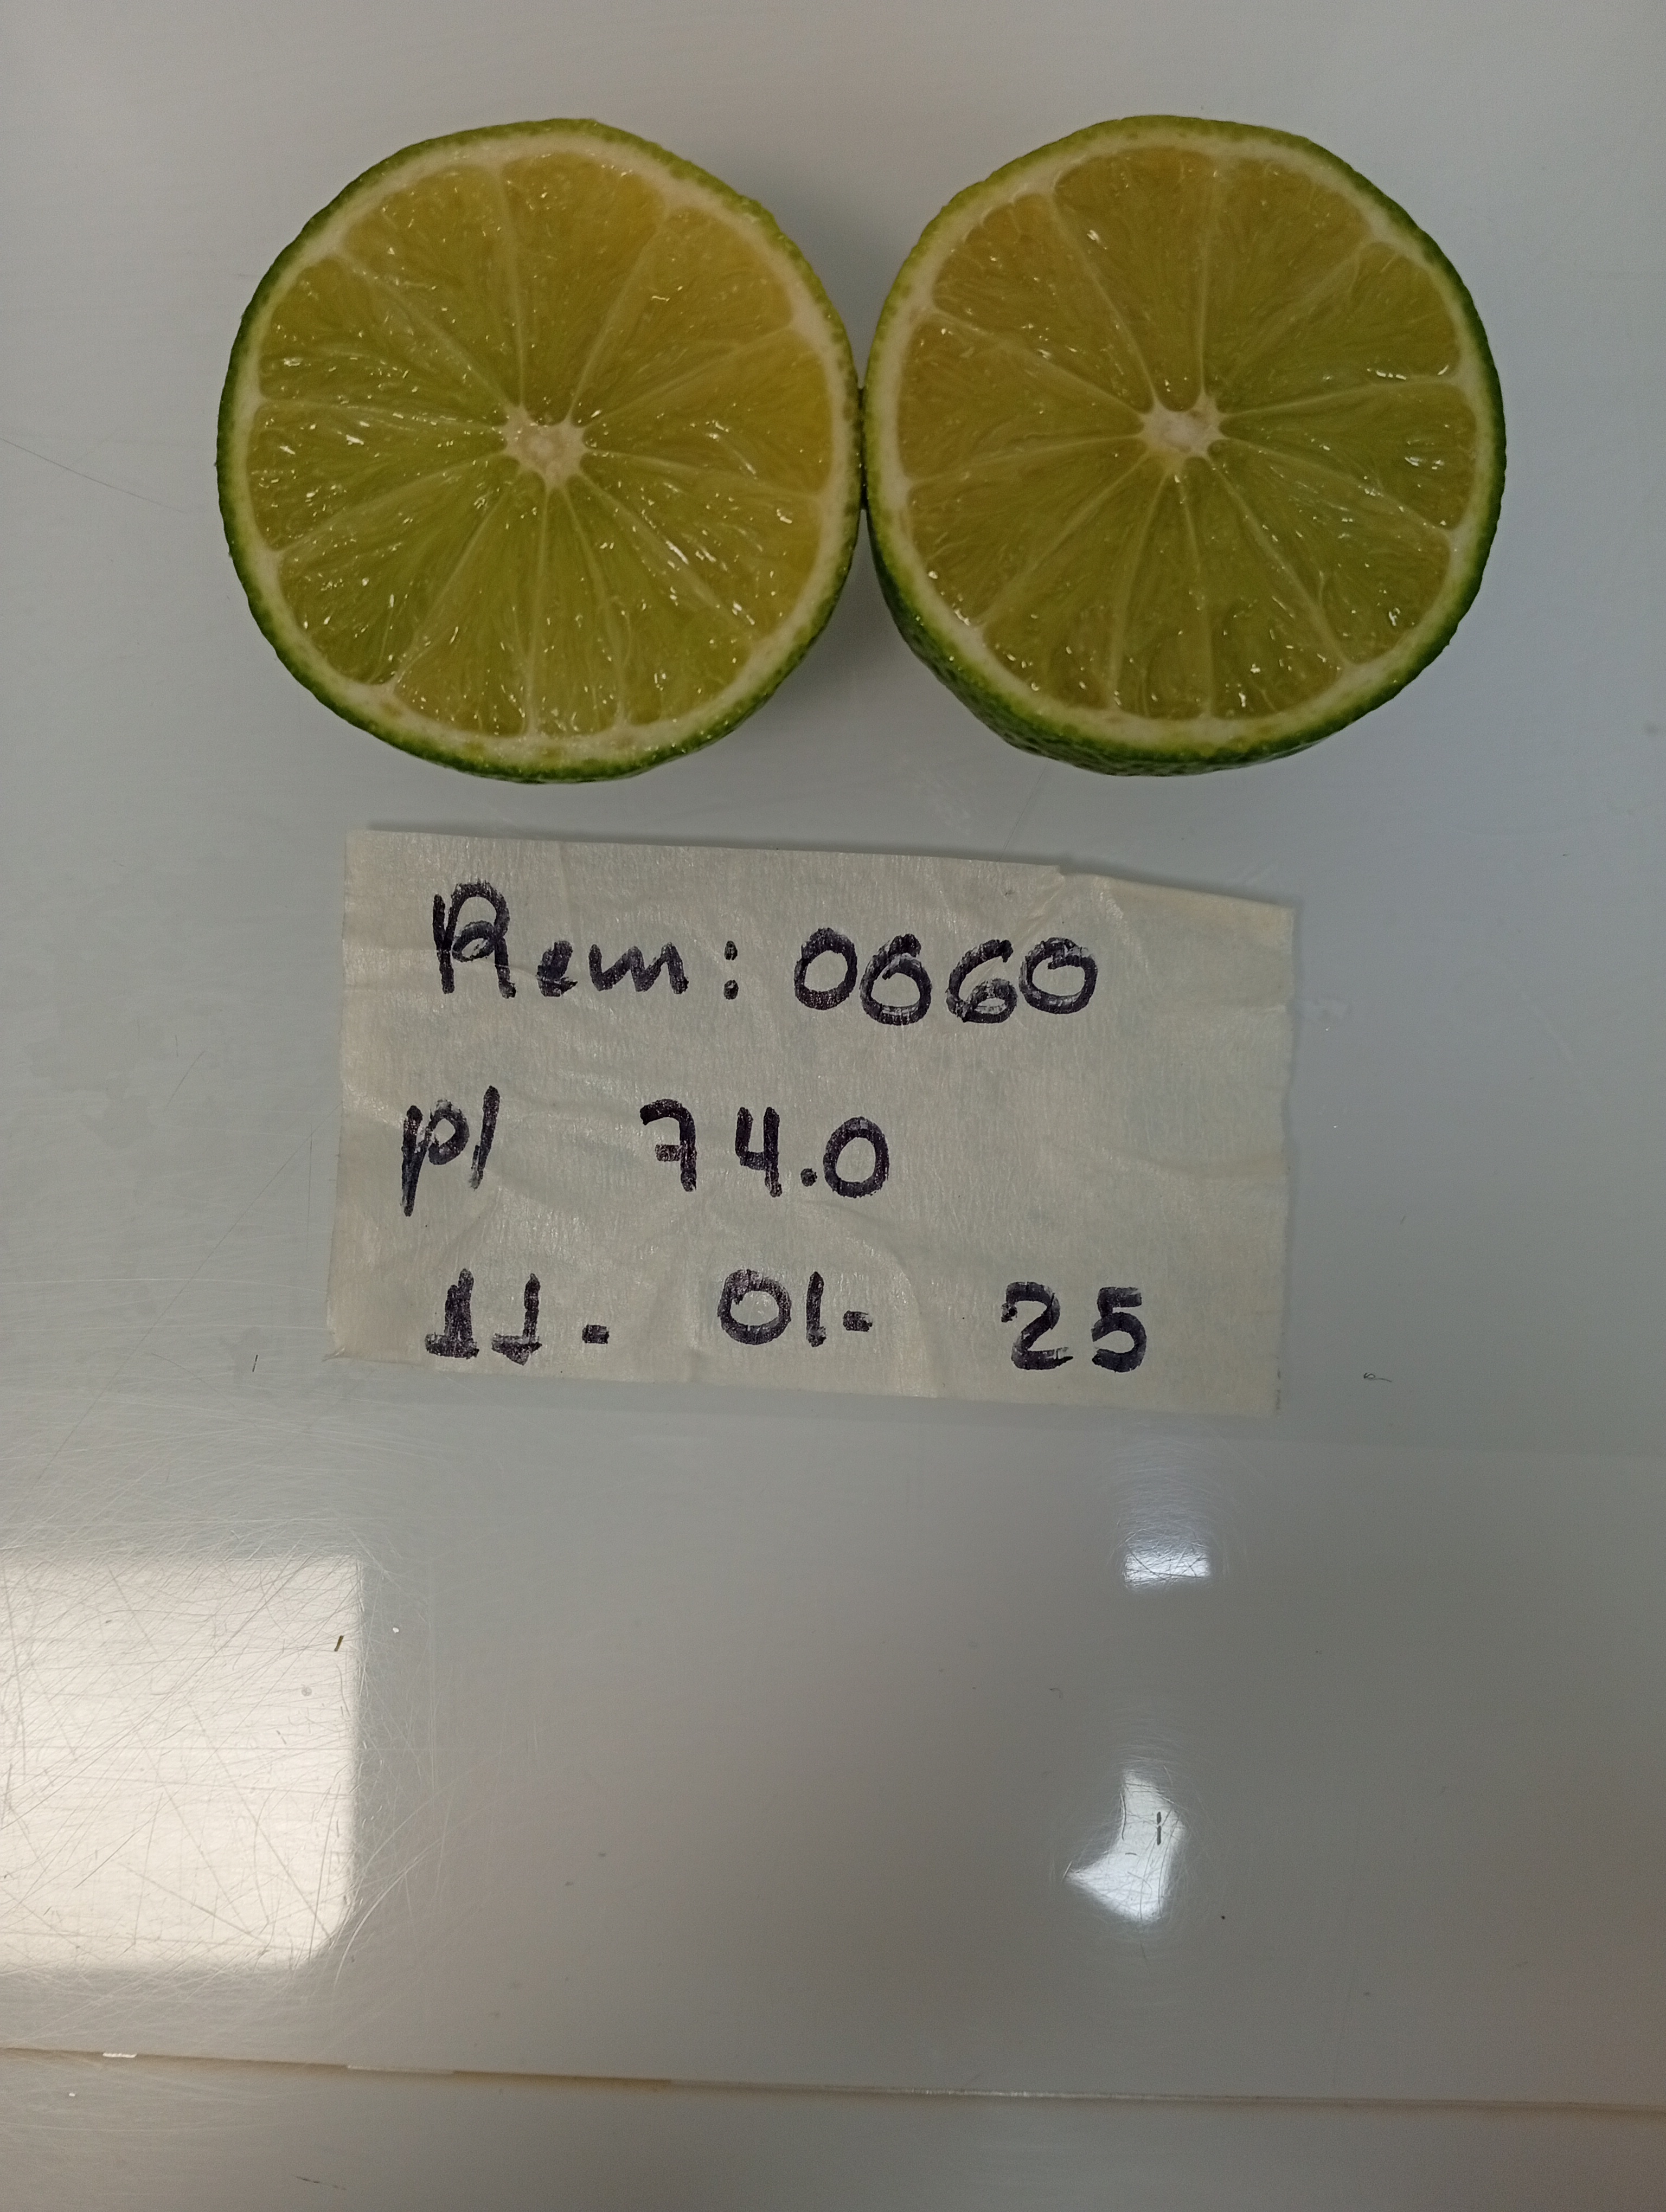 Rem: 0060
pl 74.0
11- 01- 25